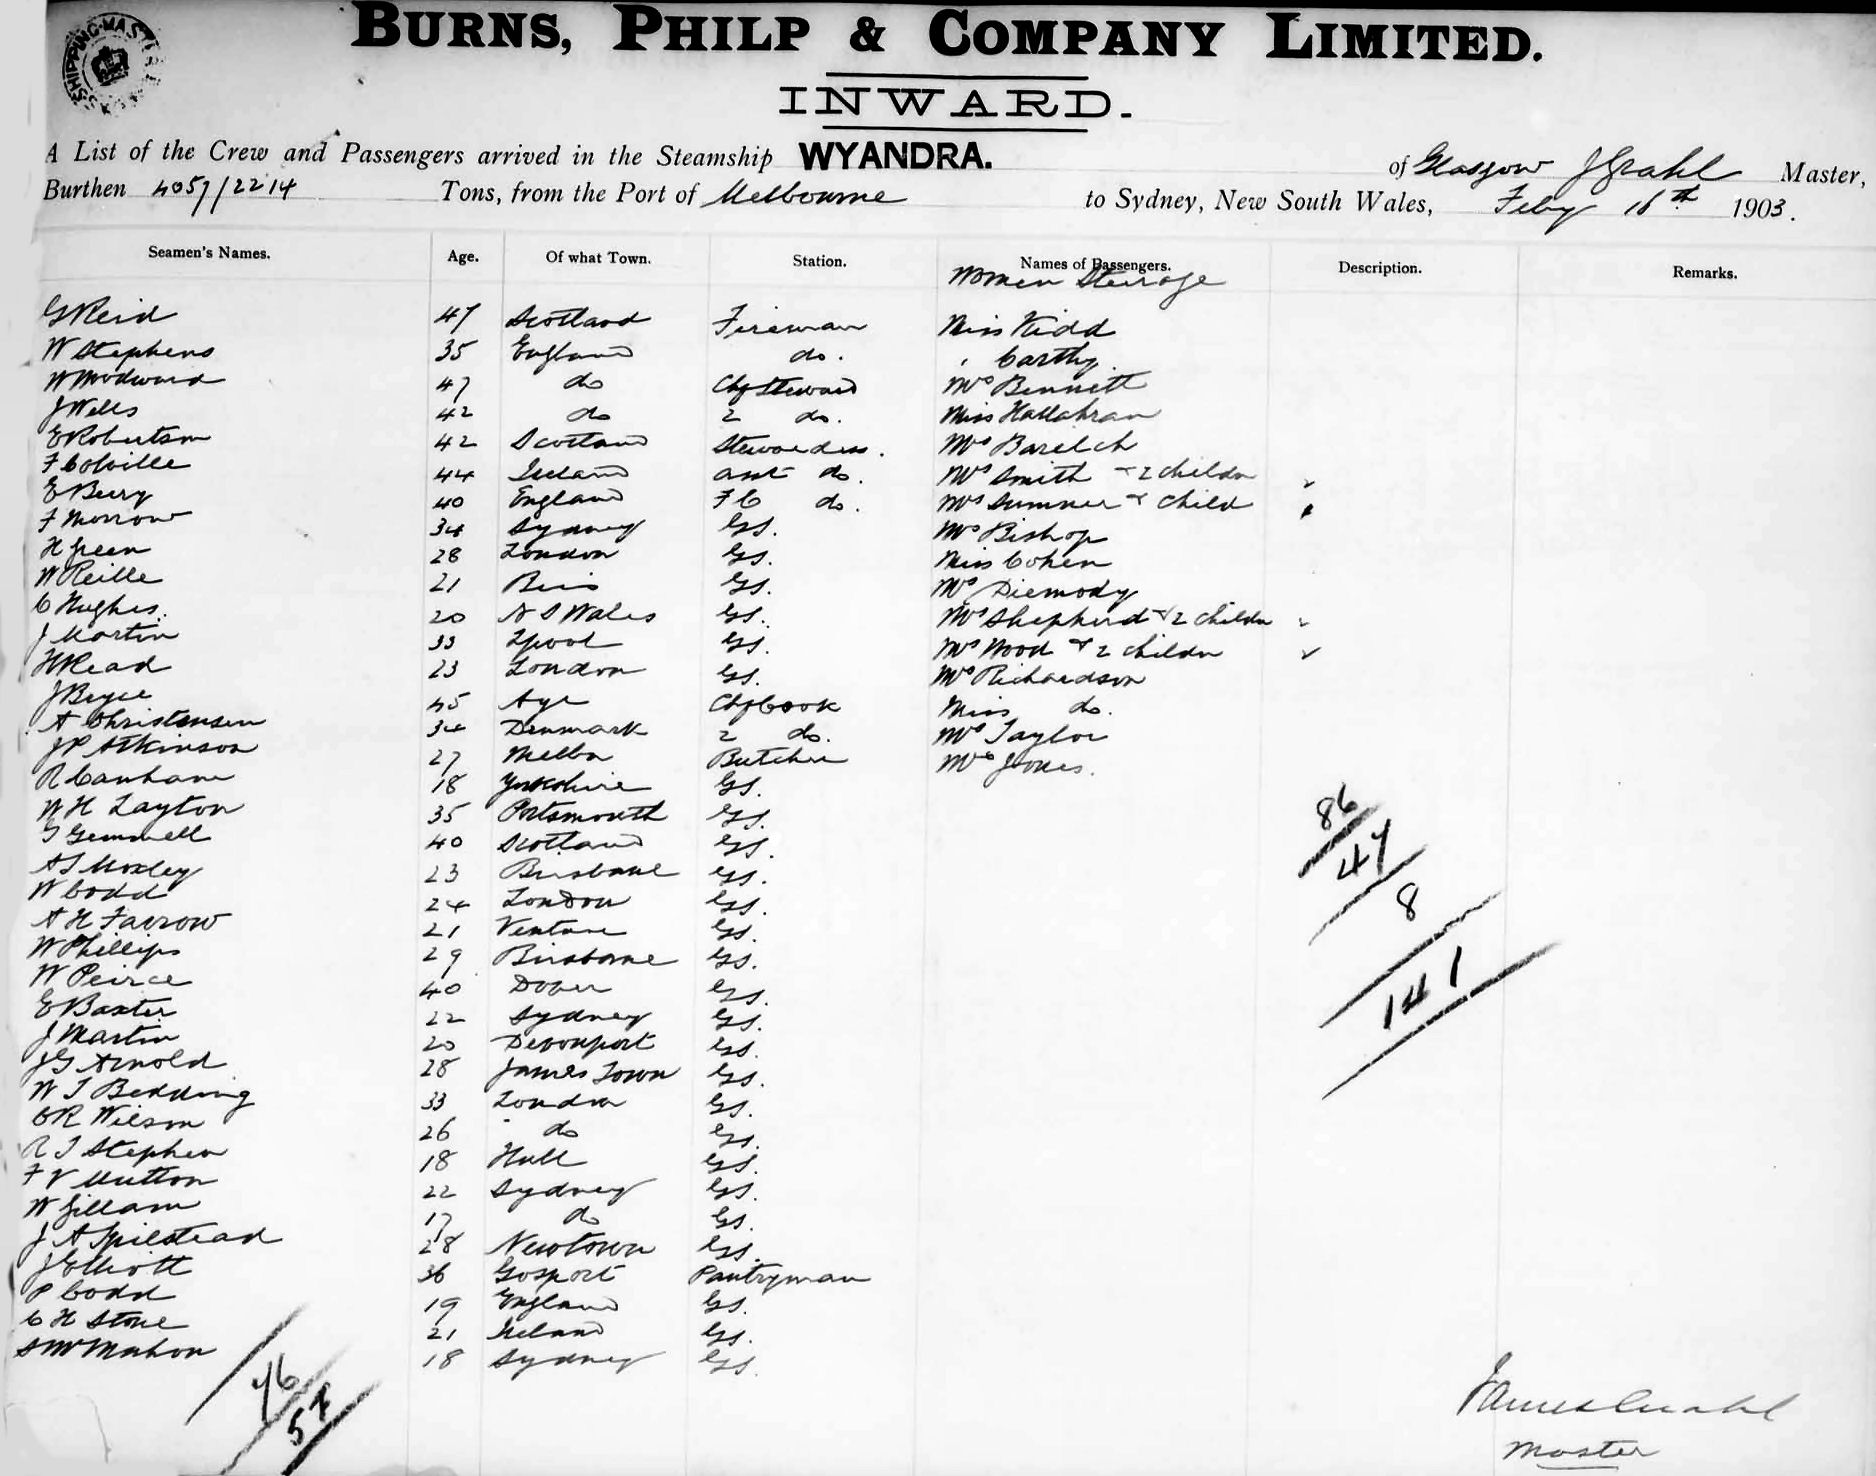 SHIPPING MASTER
BURNS, PHILP & COMPANY LIMITED.
INWARD.
A List of the Crew and Passengers arrived in the Steamship WYANDRA. of Glasgow J Grahl Master,
Burthen 4057/2214 Tons, from the Port of Melbourne to Sydney, New South Wales, Feby 16th 1903.
Seamen's Names. Age. Of what Town. Station. Names of Passengers. Description. Remarks.
Women Steerage
G Reid 47 Scotland Fireman Miss Kidd
W Stephens 35 England do. " Carthy
W Woodward 47 do Chf Steward Mrs Bennett
J Wells 42 do 2 do. Miss Hallahran
E Robertson 42 Scotland Stewardess. Mrs Barelch
F Colville 44 Ireland asst do. Mrs Smith + 2 childn
E Bury 40 England F C do. Mrs Sumner + child
F Morrow 34 Sydney GS. Mrs Bishop
H Green 28 London GS. Miss Cohen
W Reille 21 GS. Mrs Diemody
C Hughes. 20 N S Wales GS. Mrs Shepherd + 2 childn
J Martin 33 Lpool GS. Mrs Wood + 2 childn
H Read 23 London GS. Mrs Richardson
J Bryce 45 Ayr Chf Cook Miss do.
A Christensen 34 Denmark 2 do. Mrs Taylor
J P Atkinson 27 Melbn Butcher Mrs Jones.
R Canham 18 Yorkshire GS.
W H Layton 35 Portsmouth GS.
G Gemmell 40 Scotland GS.
A S Moxley 23 Brisbane GS.
W Codd 24 London GS.
A H Farrow 21 GS.
W Phillips 29 Brisbane GS.
W Peirce 40 Dover GS.
E Baxter 22 Sydney GS.
J Martin 20 Devonport GS.
J G Arnold 28 James Town GS.
W J Bedding 33 London GS.
O R Wilson 26 do GS.
R J Stephen 18 Hull GS.
F V Mutton 22 Sydney GS.
W Gillam 17 do GS.
J A Spilstead 28 Newtown GS.
J Elliott 36 Gosport Pantryman
P Codd 19 England GS.
C H Stone 21 Ireland GS.
S McMahon 18 Sydney GS.
86
47
8
141
76
57
James Grahl
Master